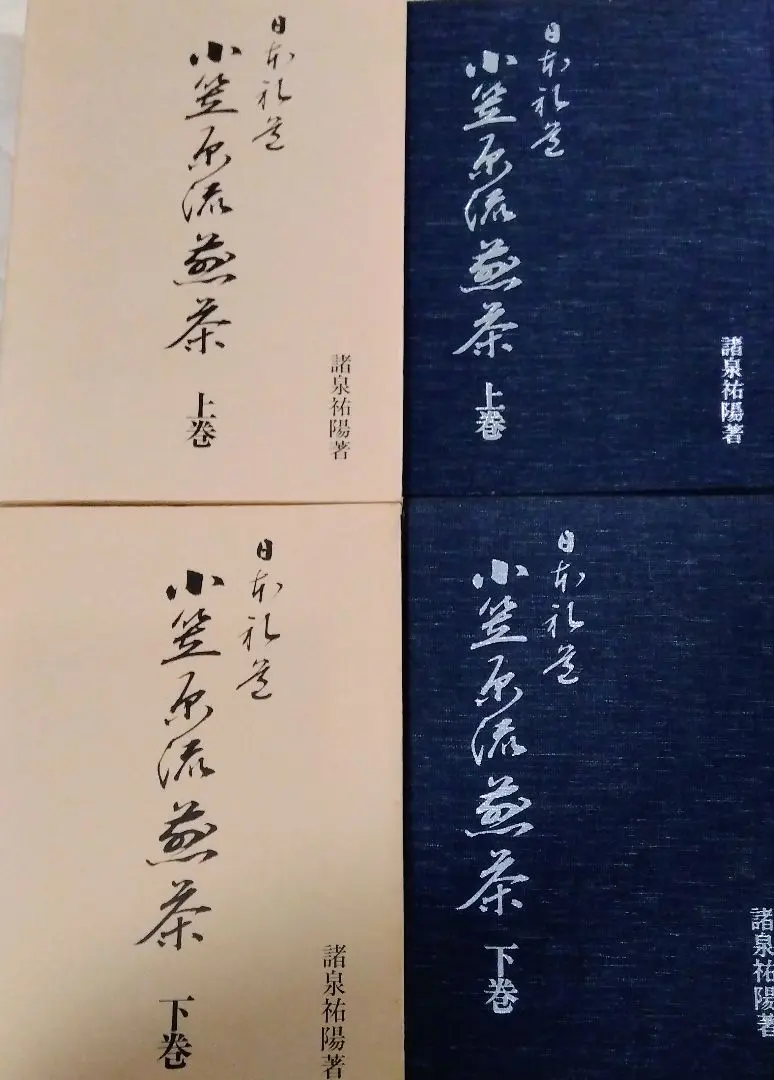 日本礼道
小笠原流煎茶
上巻
諸泉祐陽著
日本礼道
小笠原流煎茶
上巻
諸泉祐陽著
日本礼道
小笠原流煎茶
下巻
諸泉祐陽著
日本礼道
小笠原流煎茶
下巻
諸泉祐陽著